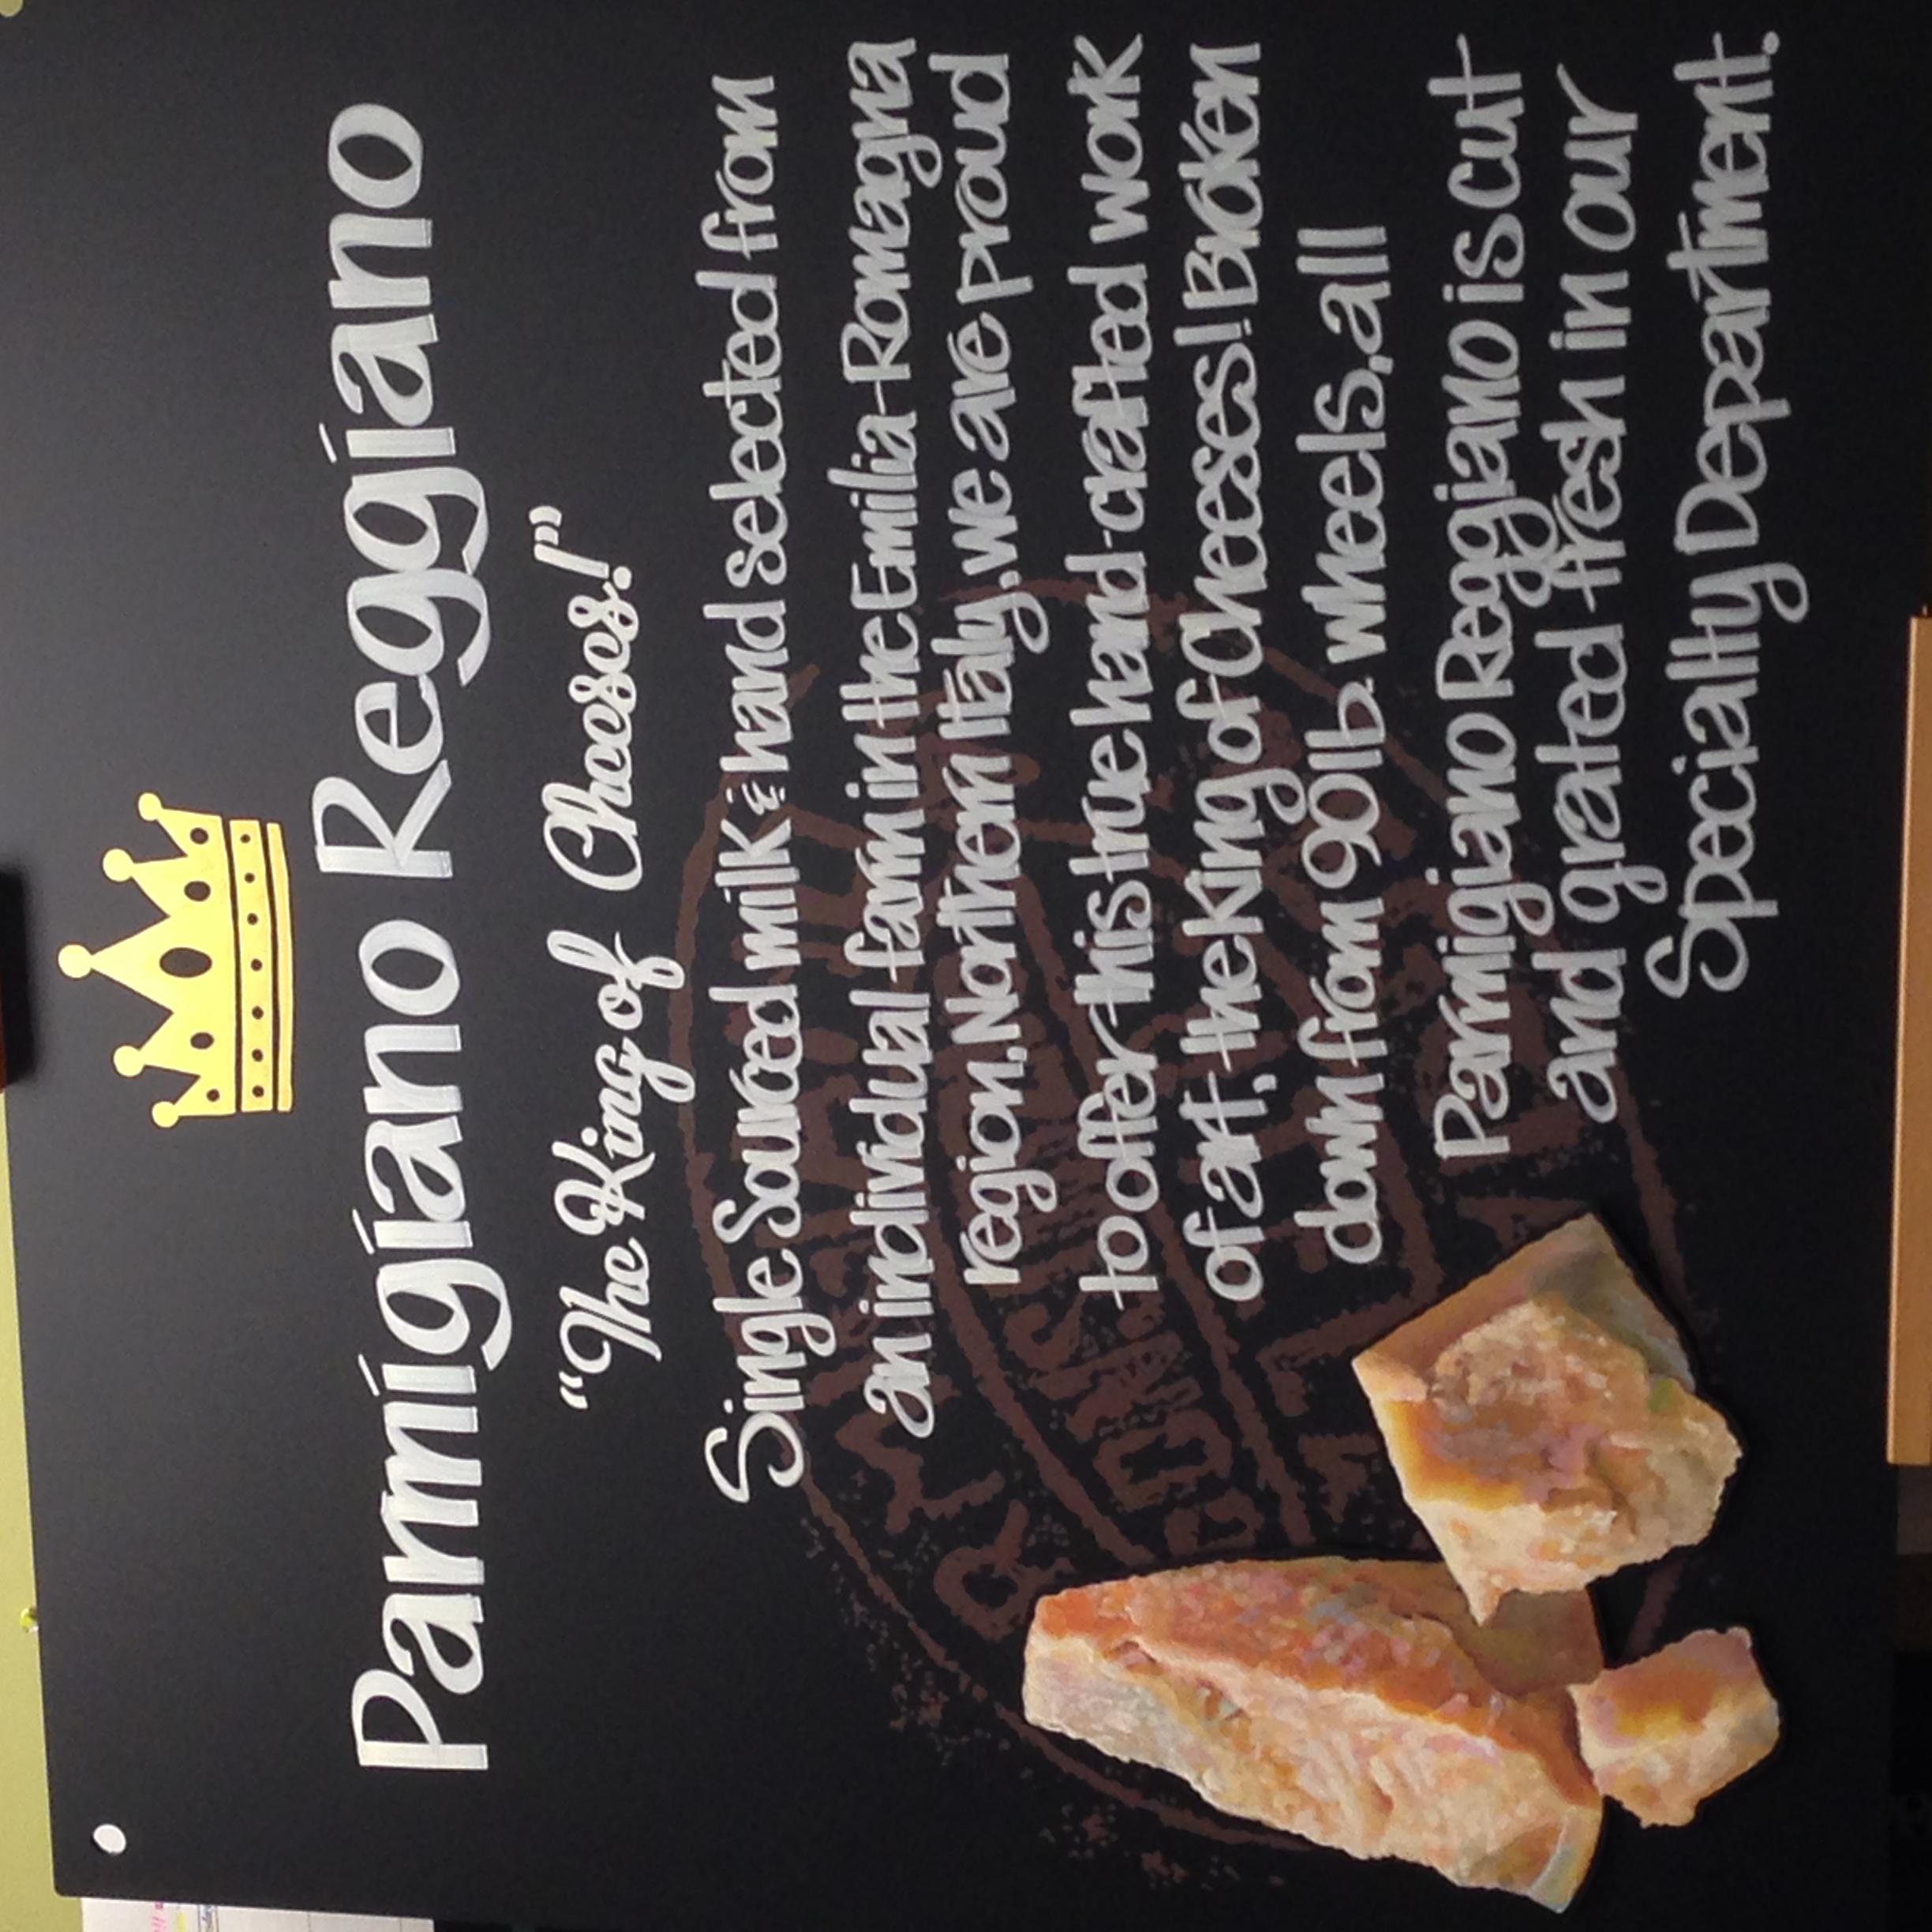 Parmigiano Reggiano
"The King of Cheeses!"
Single Sourced milk & hand selected from
an individual farm in the Emilia-Romagna
region, Northern Italy, we are proud
to offer this true hand-crafted work
of art, the King of Cheeses! Broken
down from 90 lb wheels, all
Parmigiano Reggiano is cut
and grated fresh in our
Specialty Department.